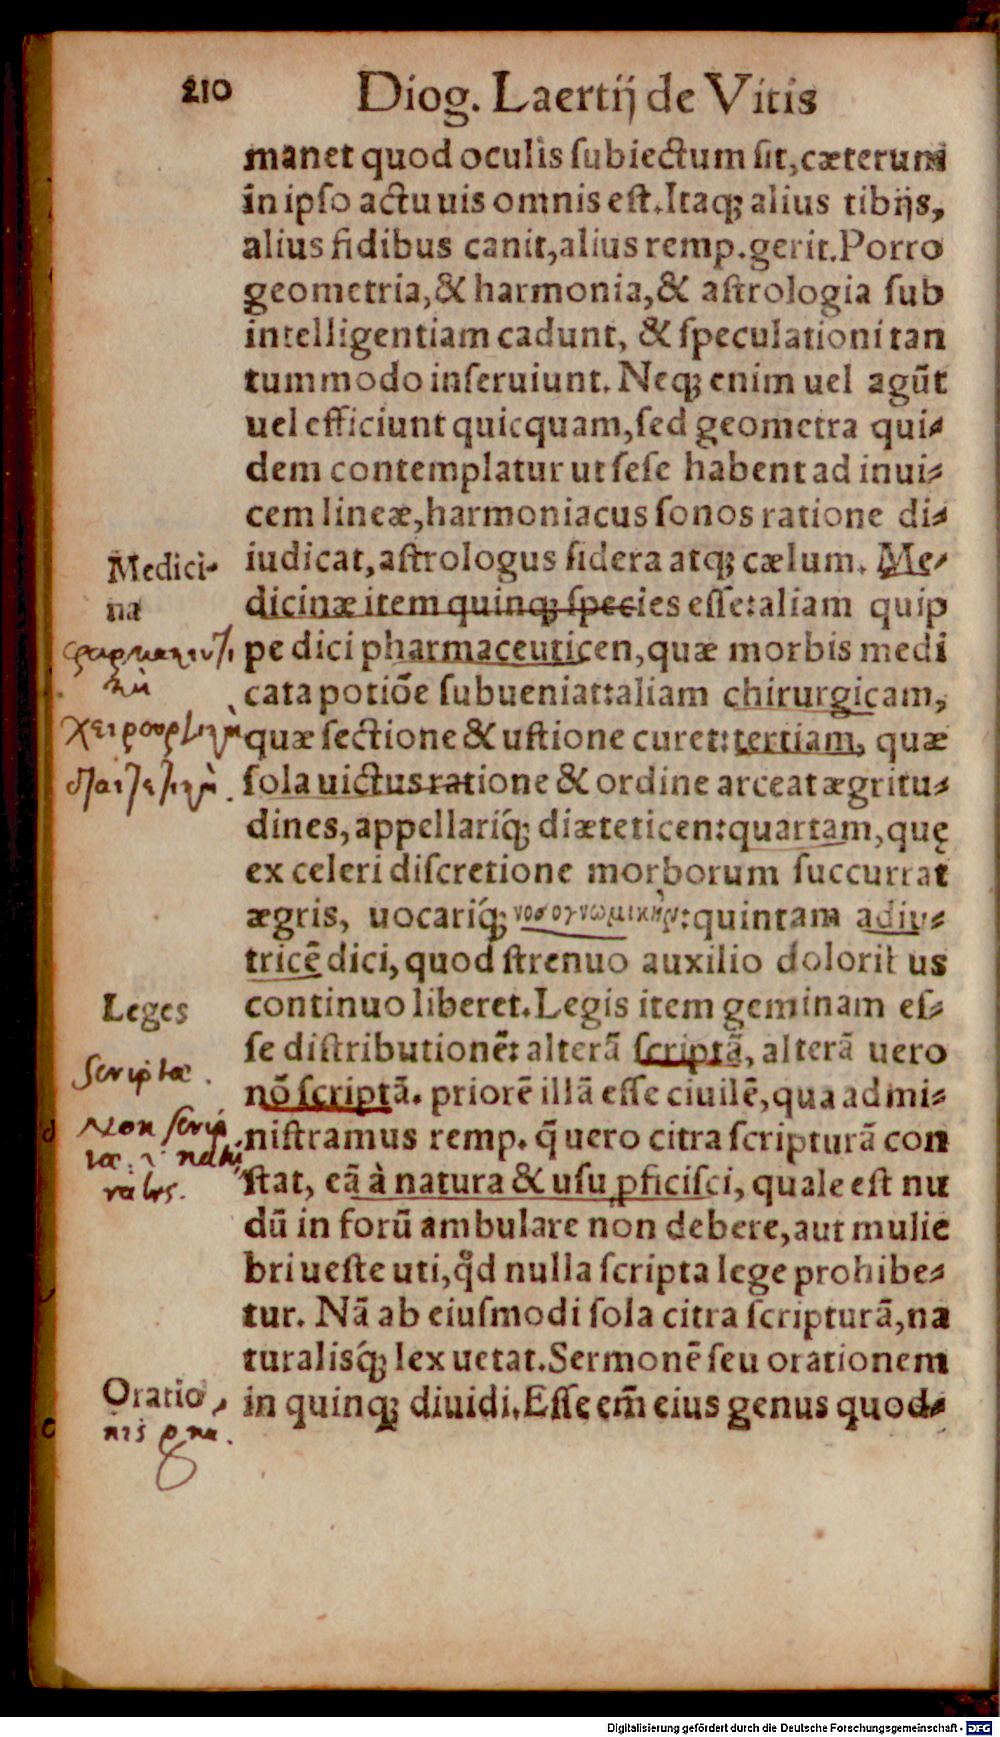 210
Diog. Laertij de Vitis
manet quod oculis ſubiectum ſit, cæterum
in ipſo actu uis omnis eſt. Itaq; alius tibijs,
alius fidibus canit, alius remp. gerit. Porro
geometria, & harmonia, & aſtrologia ſub
intelligentiam cadunt, & ſpeculationi tan
tummodo inſeruiunt. Neq; enim uel agūt
uel efficiunt quicquam, ſed geometra qui-
dem contemplatur ut ſeſe habent ad inui-
cem lineæ, harmoniacus ſonos ratione di-
iudicat, aſtrologus ſidera atq; cælum. Me-
dicinæ item quinq; ſpecies eſſe: aliam quip
pe dici pharmaceuticen, quæ morbis medi
cata potiōe ſubueniat: aliam chirurgicam,
quæ ſectione & uſtione curet: tertiam, quæ
ſola uictus ratione & ordine arceat ægritu-
dines, appellariq́; diæteticen: quartam, quę
ex celeri diſcretione morborum ſuccurrat
ægris, uocariq́; νοσογνωμικὴν: quintam adiu-
tricē dici, quod ſtrenuo auxilio doloribus
continuo liberet. Legis item geminam eſ-
ſe diſtributionē: alterā ſcriptā, alterā uero
nō ſcriptā. priorē illā eſſe ciuilē, qua admi-
niſtramus remp. q̃ uero citra ſcripturā con
ſtat, eā à natura & uſu ꝓficiſci, quale eſt nu
dū in forū ambulare non debere, aut mulie
bri ueſte uti, qđ nulla ſcripta lege prohibe-
tur. Nā ab eiuſmodi ſola citra ſcripturā, na
turalisq́; lex uetat. Sermonē ſeu orationem
in quinq; diuidi. Eſſe em̃ eius genus quod-
Medici-
na
χειρουργικὴ
Leges
Scriptæ.
Non ſcrip
tæ.
rales.
Oratio
nis
Digitalisierung gefördert durch die Deutsche Forschungsgemeinschaft - DFG